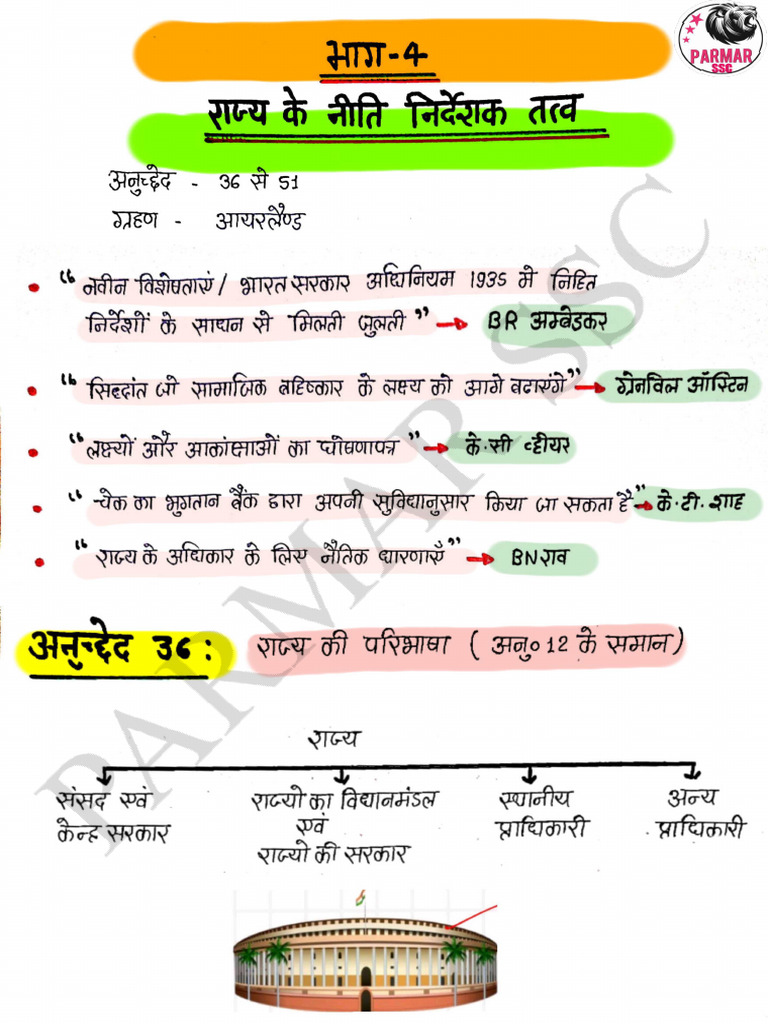 PARMAR
SSC
भाग-4
राज्य के नीति निर्देशक तत्व
अनुच्छेद - 36 से 51
ग्रहण - आयरलैण्ड
“ नवीन विशेषताएं / भारत सरकार अधिनियम 1935 मे निहित
निर्देशों के साधन से मिलती जुलती ” → BR अम्बेडकर
“ सिद्धांत जो सामाजिक बहिष्कार के लक्ष्य को आगे बढाएंगे” → ग्रेनविल ऑस्टिन
“ लक्ष्यों और आकांक्षाओं का घोषणापत्र ” → के.सी व्हीयर
“ चेक का भुगतान बैंक द्वारा अपनी सुविधानुसार किया जा सकता है” → के.टी. शाह
“ राज्य के अधिकार के लिए नैतिक धारणाएँ” → BN राव
अनुच्छेद 36 : राज्य की परिभाषा ( अनु० 12 के समान )
राज्य
संसद एवं
केन्द्र सरकार
राज्यो का विधानमंडल
एवं
राज्यो की सरकार
स्थानीय
प्राधिकारी
अन्य
प्राधिकारी
PARMAR SSC